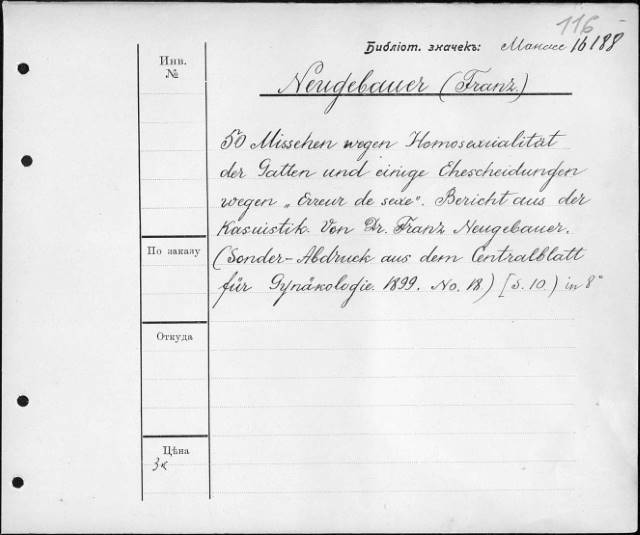 116
Библіот. значекъ: Манасс 16188
Инв.
№
Neugebauer (Franz.)
50 Missehen wegen Homosexualität
der Gatten und einige Ehescheidungen
wegen „Erreur de sexe". Bericht aus der
Kasuistik. Von Dr. Franz Neugebauer.
По заказу
(Sonder-Abdruck aus dem Centralblatt
für Gynäkologie. 1899. No. 18.) [S. 10.) in 8°
Откуда
Цѣна
3к